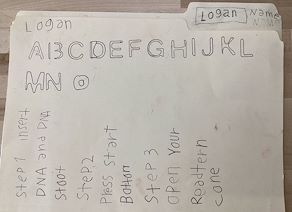 Logan
Logan Name
Name
ABCDEFGHIJKL
MNO
Step 1 Insert
DNA and DNA
Shoot
Step 2
Press Start
Button
Step 3
Open Your
cone